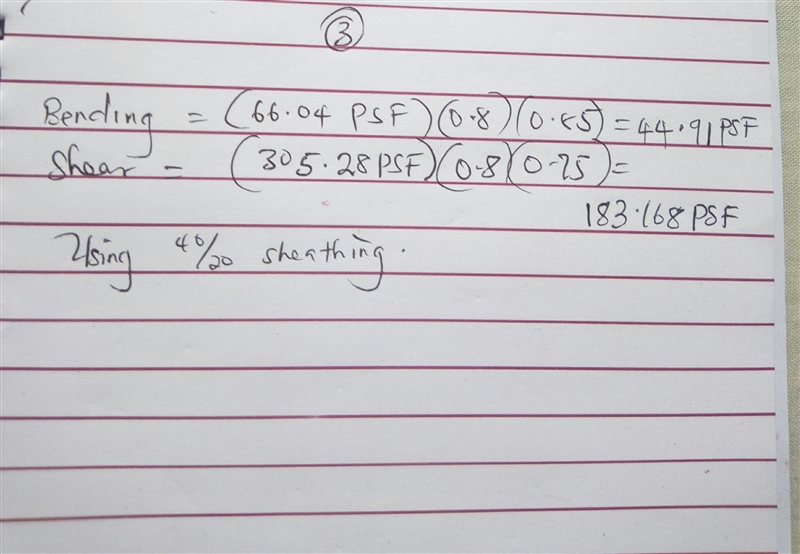 3
Bending = (66.04 PSF)(0.8)(0.85) = 44.91 PSF
Shear = (305.28 PSF)(0.8)(0.75) =
183.168 PSF
Using 40/20 sheathing.